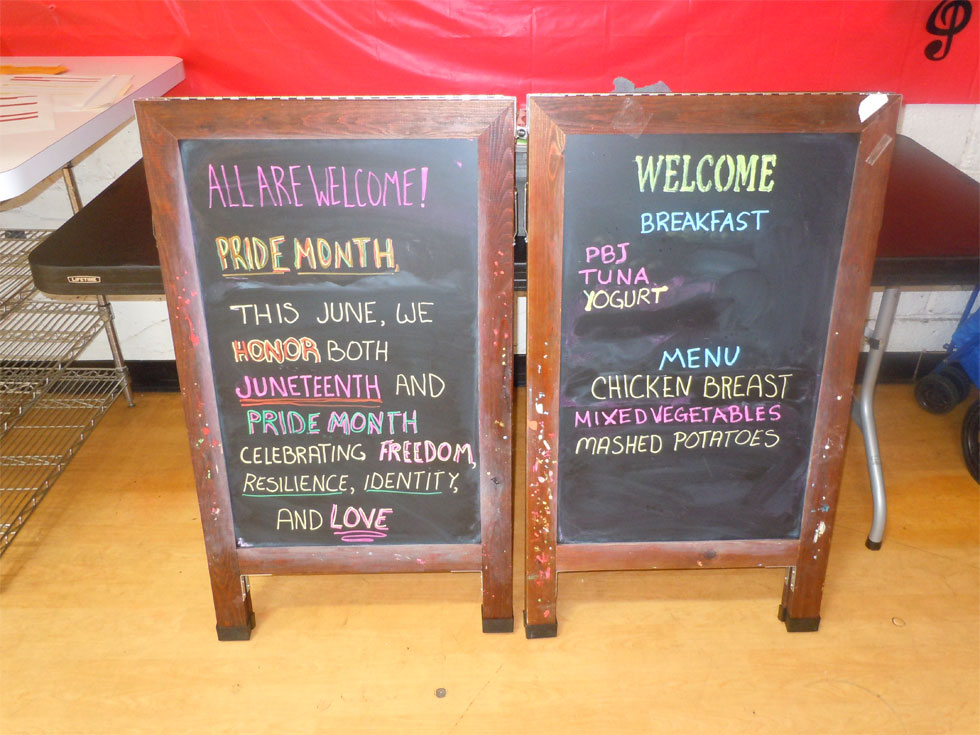 ALL ARE WELCOME!
PRIDE MONTH,
THIS JUNE, WE
HONOR BOTH
JUNETEENTH AND
PRIDE MONTH
CELEBRATING FREEDOM,
RESILIENCE, IDENTITY,
AND LOVE
WELCOME
BREAKFAST
PBJ
TUNA
YOGURT
MENU
CHICKEN BREAST
MIXED VEGETABLES
MASHED POTATOES
LIFETIME